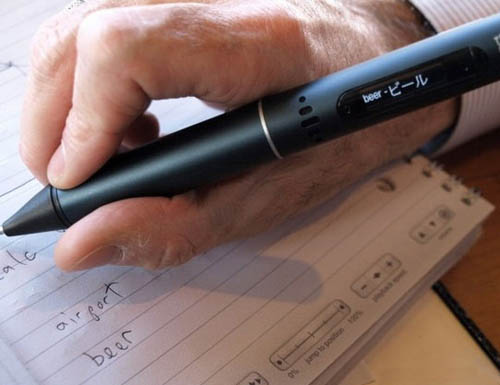 beer-ビール
calc
airport
beer
0% jump to position 100%
playback speed